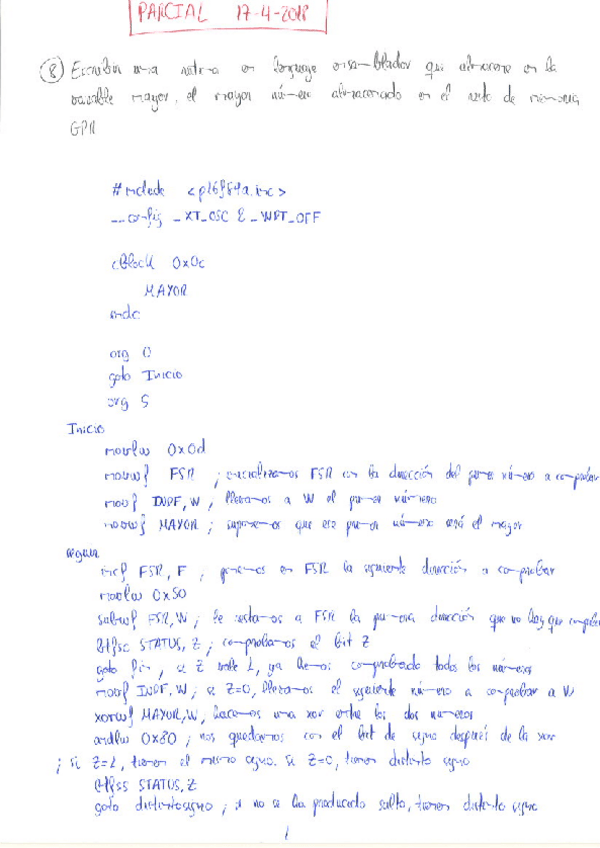 PARCIAL 17-4-2018
8) Escribir una rutina en lenguaje ensamblador que almacene en la
variable mayor, el mayor número almacenado en el resto de memoria
GPR
#include <p16f84a.inc>
__config _XT_OSC & _WDT_OFF
cBlock 0x0c
MAYOR
endc
org 0
goto Inicio
org 5
Inicio
movlw 0x0d
movwf FSR ; inicializamos FSR con la dirección del primer número a comprobar
movf INDF, W ; llevamos a W el primer número
movwf MAYOR ; suponemos que ese primer número será el mayor
seguir
incf FSR, F ; ponemos en FSR la siguiente dirección a comprobar
movlw 0x50
subwf FSR, W ; le restamos a FSR la primera dirección que no hay que comprobar
btfsc STATUS, Z ; comprobamos el bit Z
goto fin ; si Z vale 1, ya hemos comprobado todos los números
movf INDF, W ; si Z=0, llevamos el siguiente número a comprobar a W
xorwf MAYOR, W ; hacemos una xor entre los dos números
andlw 0x80 ; nos quedamos con el bit de signo después de la xor
; si Z=1, tienen el mismo signo. Si Z=0, tienen distinto signo
btfss STATUS, Z
goto distintosigno ; si no se ha producido salto, tienen distinto signo
1